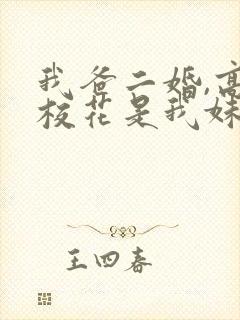 我爸二婚,高
校花是我妹
王四春